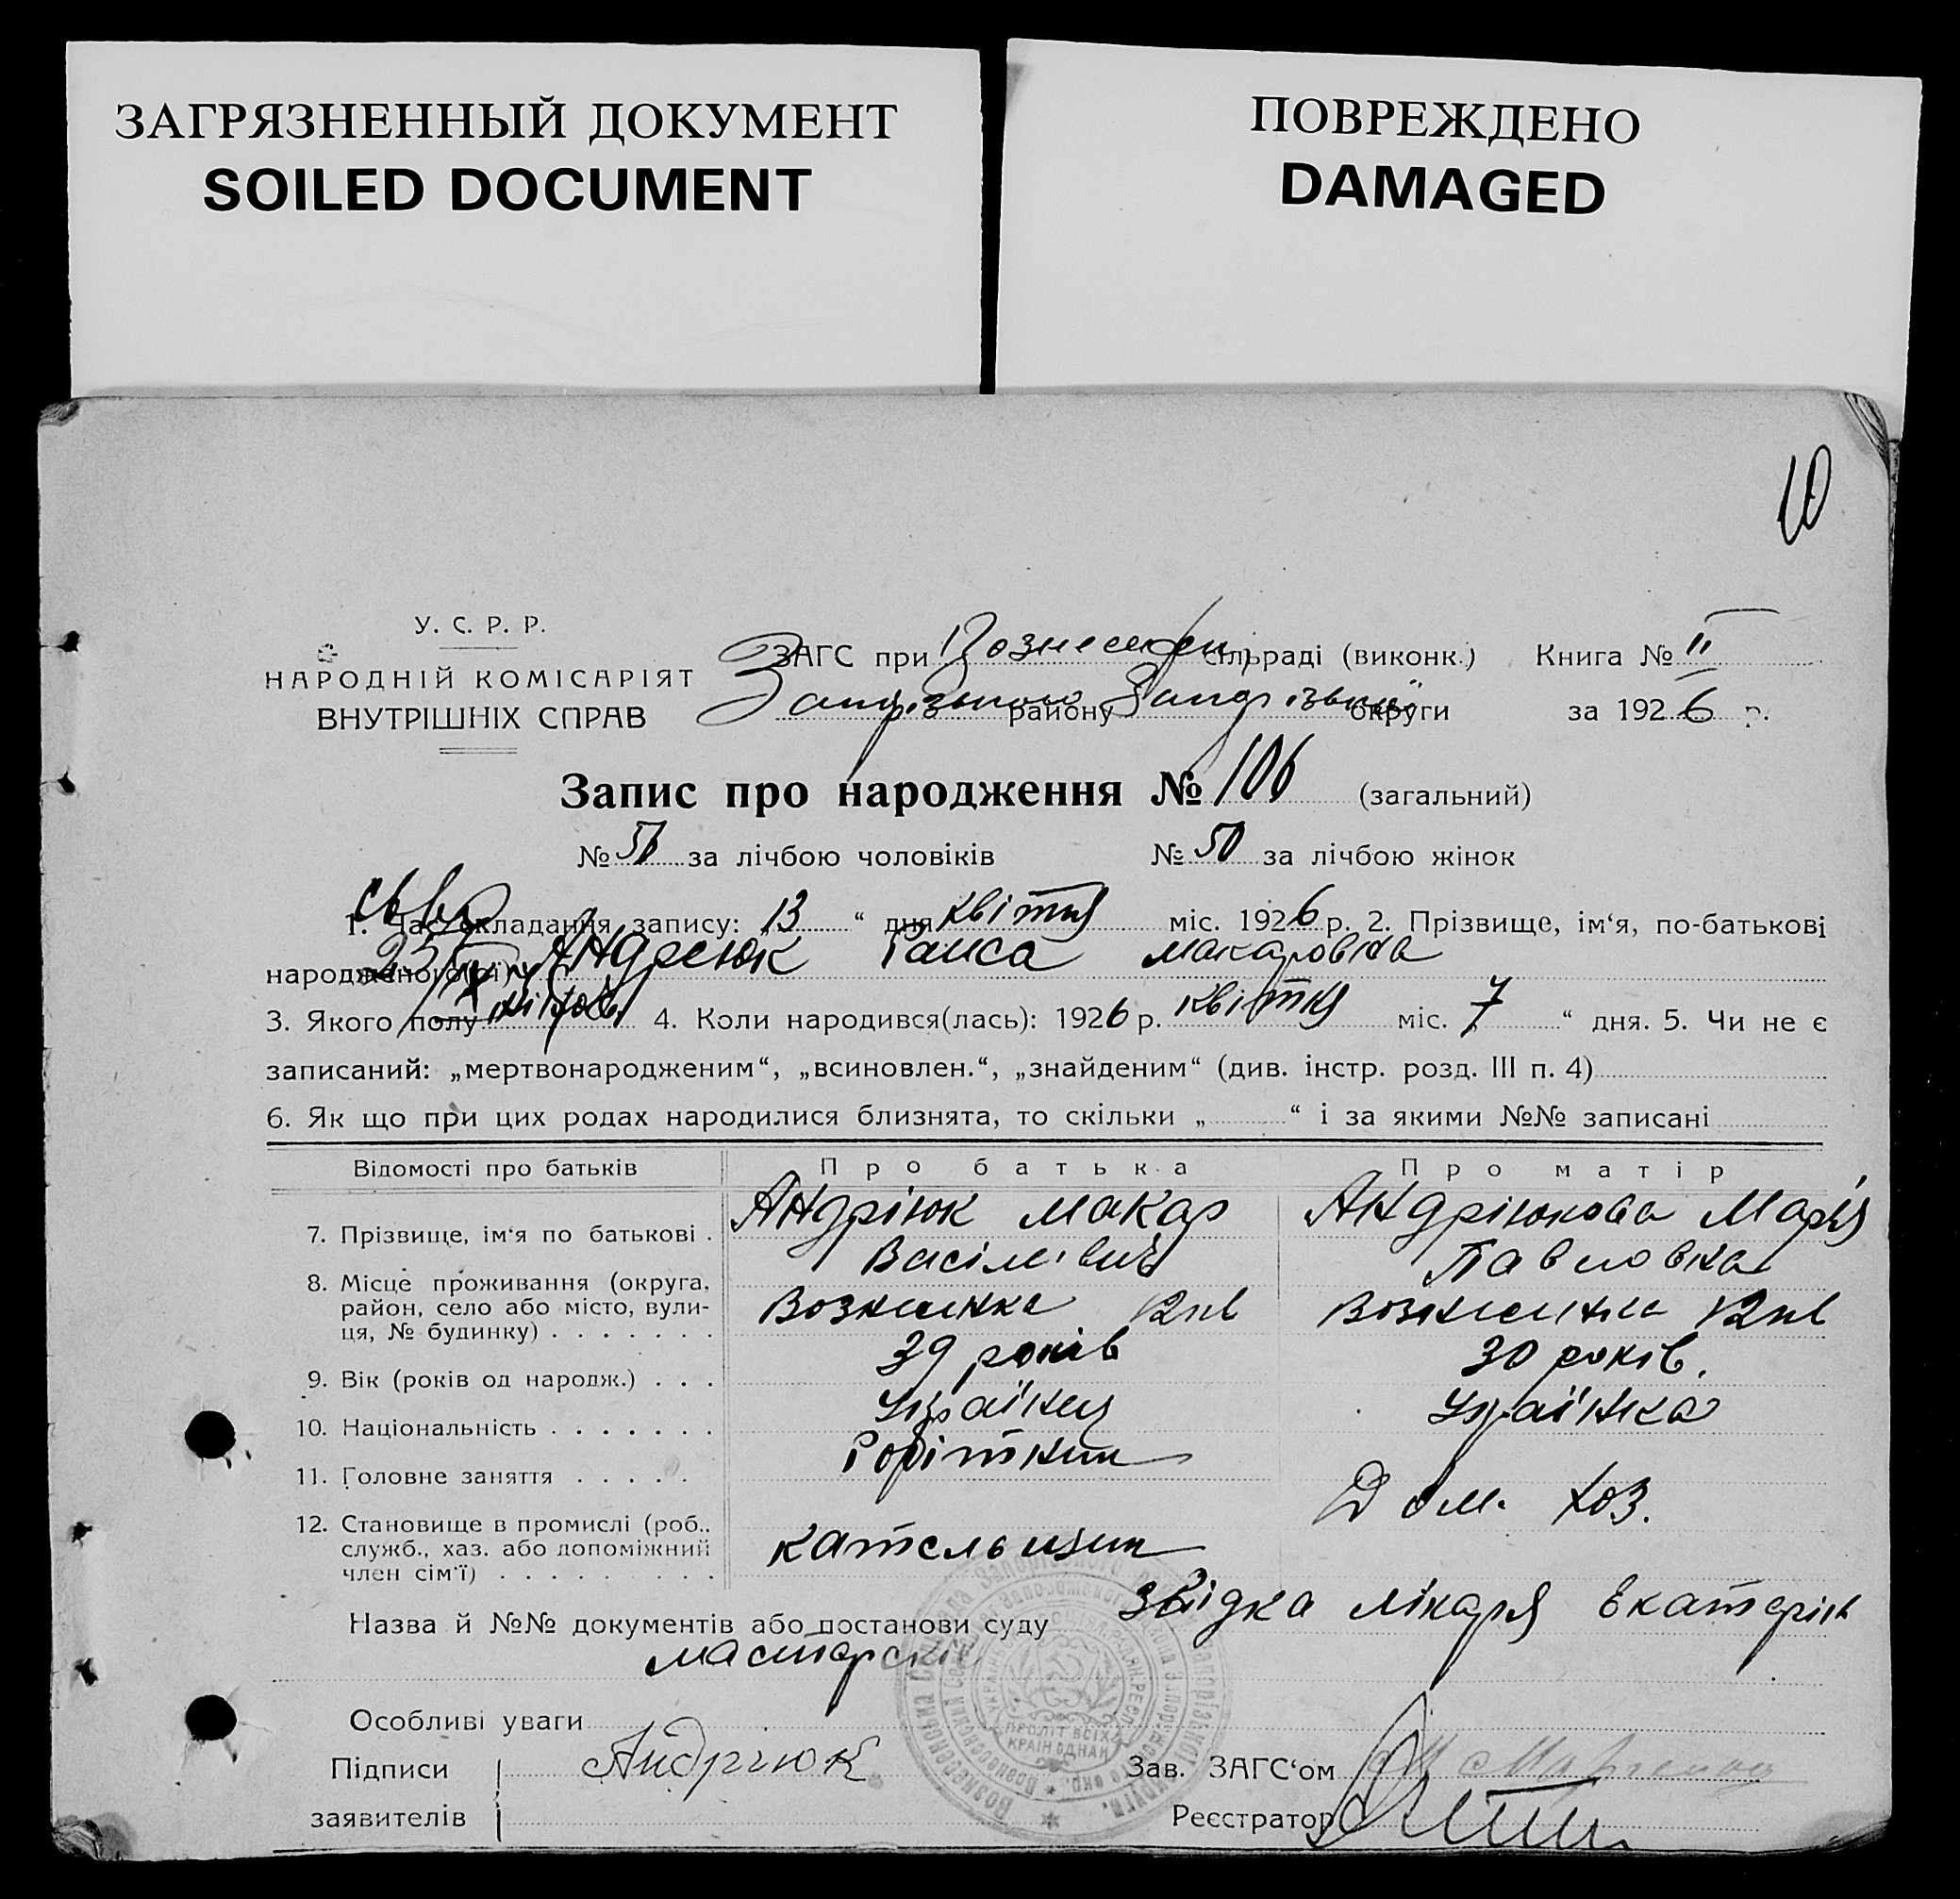 ЗАГРЯЗНЕННЫЙ ДОКУМЕНТ
SOILED DOCUMENT
ПОВРЕЖДЕНО
DAMAGED
10
У. С. Р. Р.
НАРОДНІЙ КОМІСАРІЯТ
ВНУТРІШНІХ СПРАВ
ЗАГС при сільраді (виконк.) Книга № II
району округи за 1926 р.
Запис про народження № 106 (загальний)
№ за лічбою чоловіків № 50 за лічбою жінок
1. Час складання запису: „13“ дня квітня міс. 1926 р. 2. Прізвище, ім‘я, по-батькові
народженого(ої) Андреюк Раиса Макаровна
3. Якого полу жіночо 4. Коли народився(лась): 1926 р. квітня міс. „7“ дня. 5. Чи не є
записаний: „мертвонародженим“, „всиновлен.“, „знайденим“ (див. інстр. розд. III п. 4)
6. Як що при цих родах народилися близнята, то скільки „ “ і за якими №№ записані
Відомості про батьків Про батька Про матір
7. Прізвище, ім‘я по батькові . Андріюк Макар Андріюкова Марія
Василівич Павловна
8. Місце проживання (округа,
район, село або місто, вули-
ця, № будинку) . . . . . . . Вознесенка 12 Вознесенка 12
9. Вік (років од народж.) . . . 39 років 30 років.
10. Національність . . . . . . . Українец Українка
11. Головне заняття . . . . . Робітник
Дом. хоз.
12. Становище в промислі (роб.,
служб., хаз. або допоміжний
член сім‘ї) . . . . . . . . . . котельщик
Назва й №№ документів або постанови суду звідка лікаря Екатерін
мастерских
Особливі уваги
Підписи Андріюк Зав. ЗАГС‘ом
заявителів Реєстратор
ПРОЛІТ ВСІХ
КРАІН ЄДНАЙ